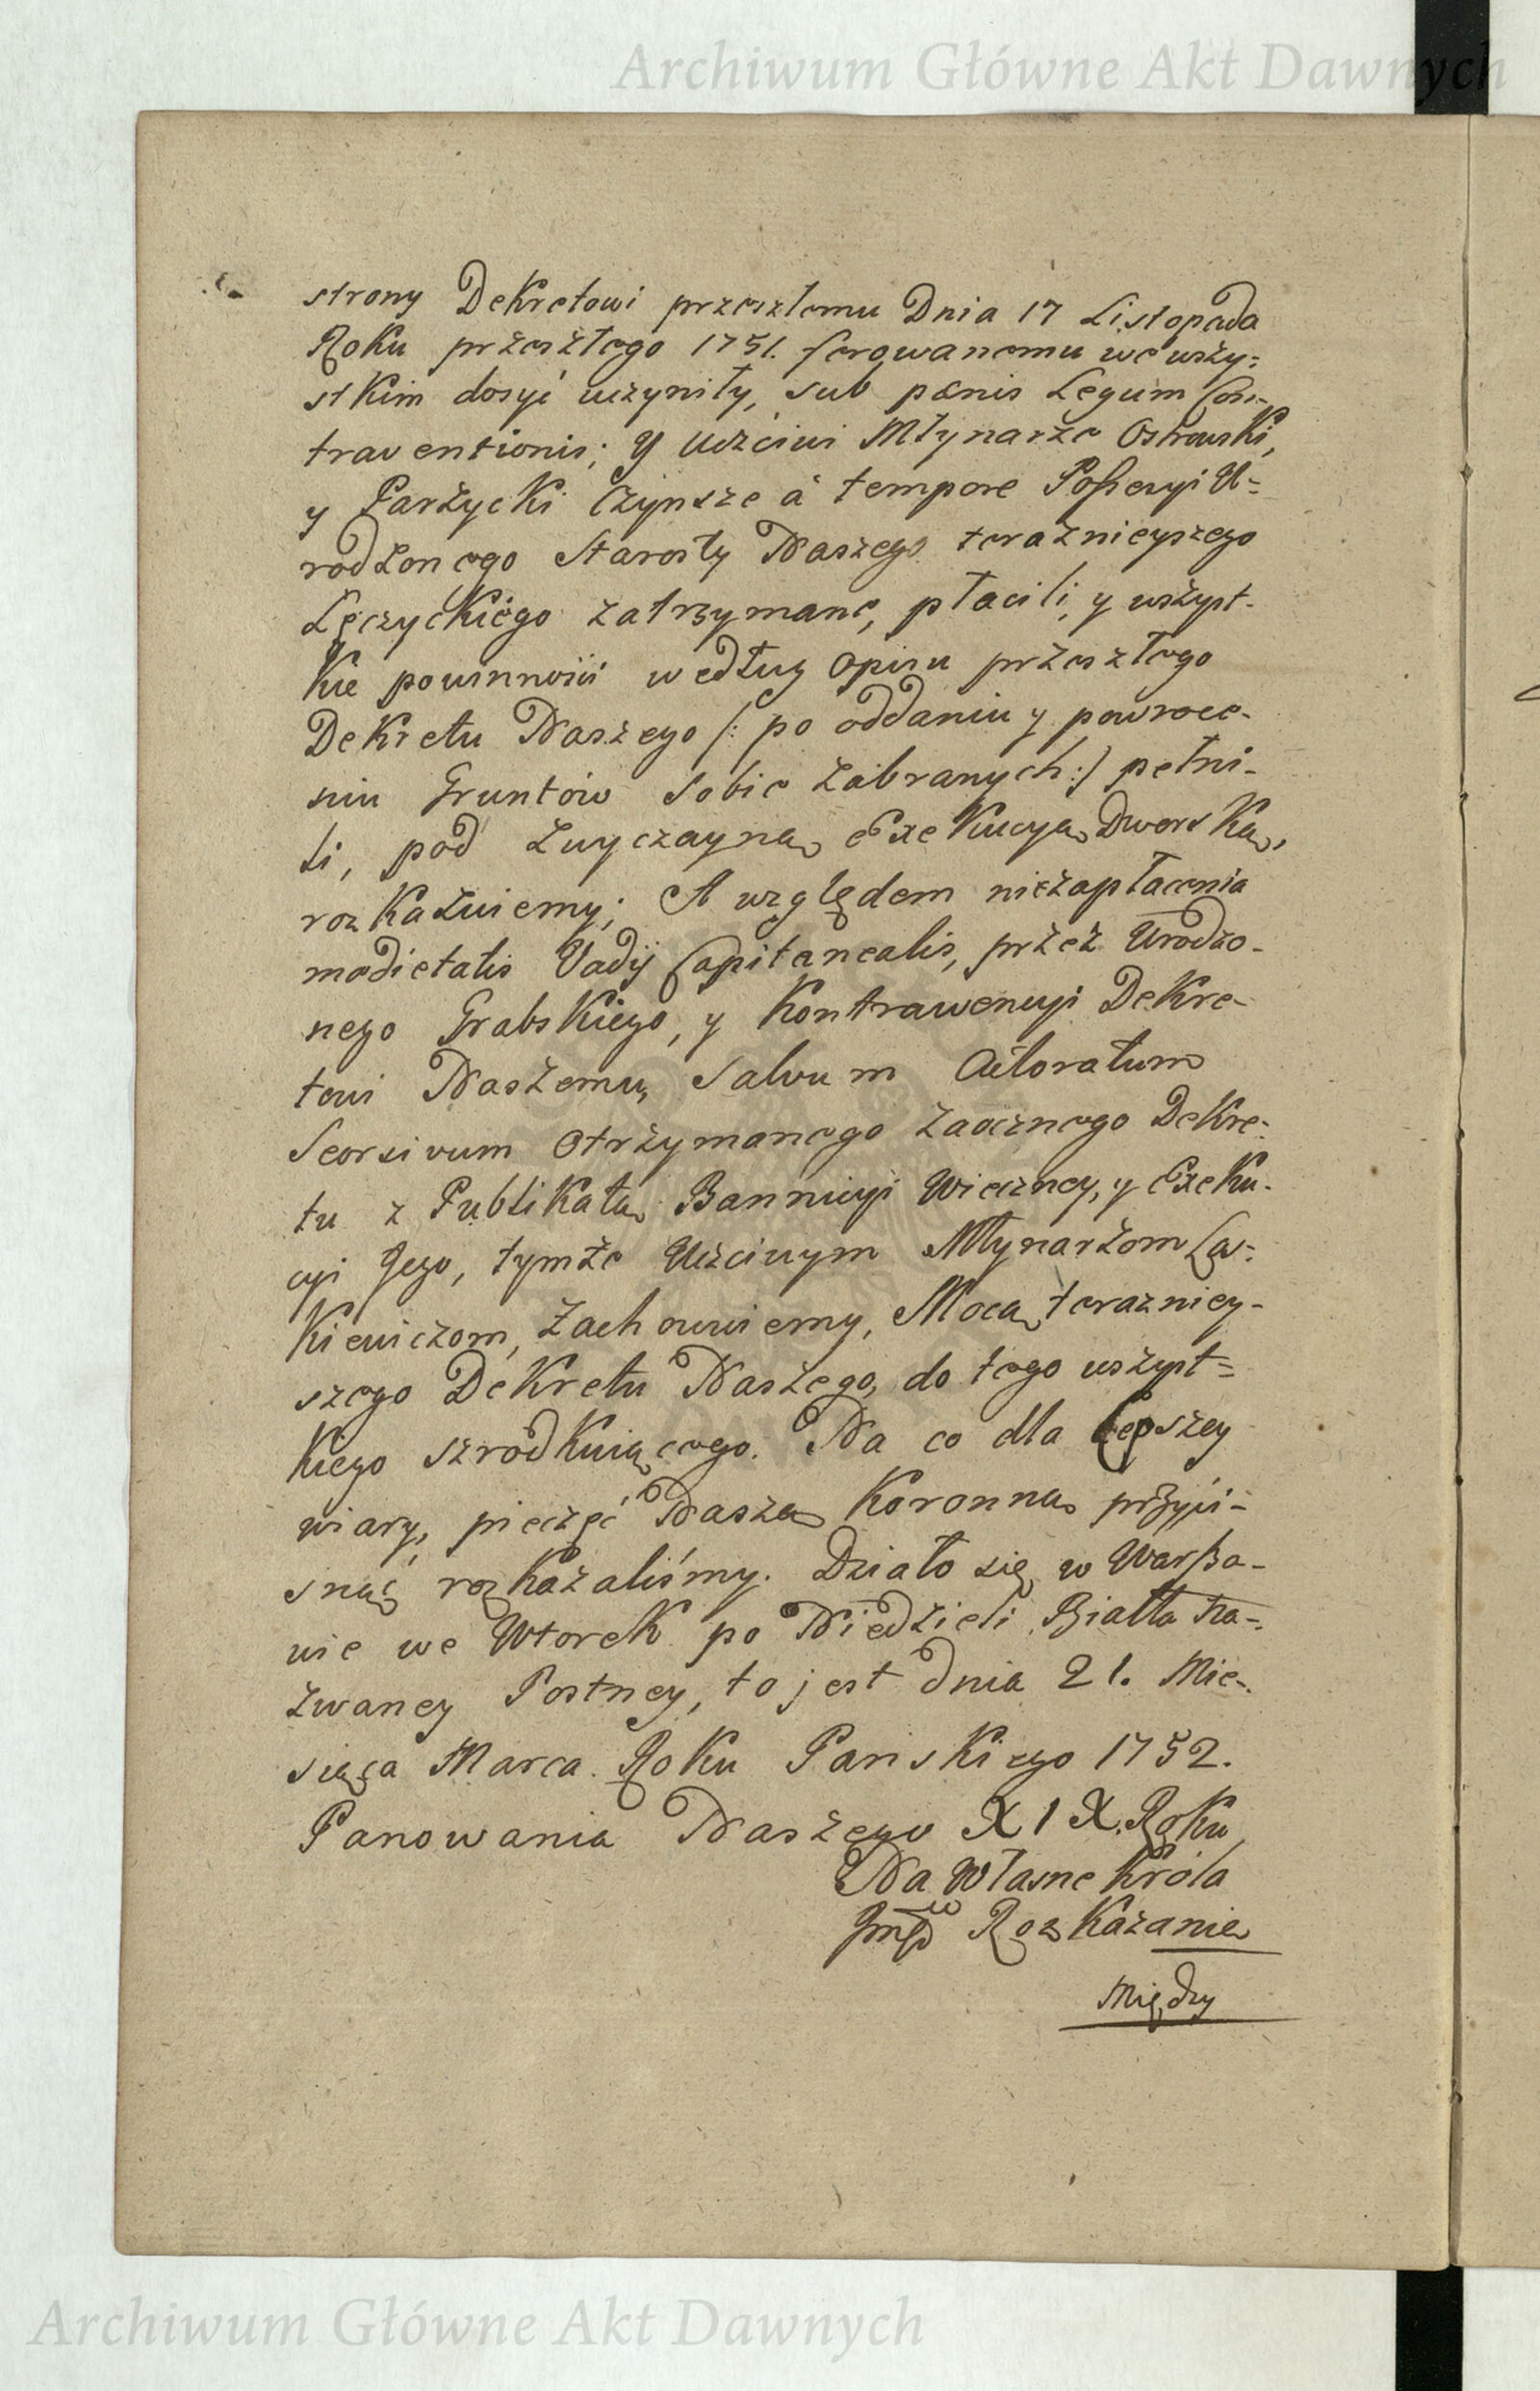 Archiwum Główne Akt Dawnych
strony Dekretowi przeszłemu Dnia 17 Listopada
Roku przeszłego 1751. ferowanemu we wszy=
stkim dosyć uczyniły, sub pænis Legum Con-
traventionis; y Uczciwi Młynarze Ostrowski,
y Parzycki Czynsze à tempore Possesyi U=
rodzonego Starosty Naszego teraznieyszego
Łęczyckiego zatrzymane, płacili, y wszyst-
kie powinności według opisu przeszłego
Dekretu Naszego /: po oddaniu y powroce-
niu Gruntów sobie zabranych :/ pełni-
li, pod zwyczayną Exekucyą Dworską,
rozkazuiemy; A względem niezapłacenia
medietatis Vadij Capitanealis, przez Urodzo-
nego Grabskiego, y Kontrawencyi Dekre-
towi Naszemu, salvum Actoratum
Seorsivum otrzymanego zaocznego Dekre-
tu z Publikatą Bannicyi Wieczney, y Exeku-
cyi Jego, tymże Uczciwym Młynarzom Ła-
kiewiczom, zachowuiemy, Mocą terazniey-
szego Dekretu Naszego, do tego wszyst=
kiego szrodkuiącego. Na co dla lepszey
wiary, pieczęć Naszą Koronną przyci-
snąć rozkazaliśmy. Działo się w Warsza-
wie we Wtorek po Niedzieli Białła na-
zwaney Postney, to jest dnia 21. Mie-
siąca Marca Roku Panskiego 1752.
Panowania Naszego XIX. Roku
Na Własne Króla
Jmści Rozkazanie
Między
Archiwum Główne Akt Dawnych